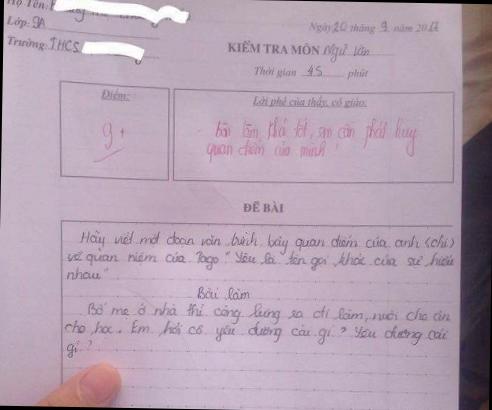 Họ Tên:
Lớp: 9A
Trường: THCS
Ngày 20 tháng 9 năm 2017
KIỂM TRA MÔN Ngữ Văn
Thời gian 45 phút
Điểm:
9+
Lời phê của thầy, cô giáo:
- bài làm khá tốt, em cần phát huy
quan điểm của mình!
ĐỀ BÀI
Hãy viết một đoạn văn trình bày quan điểm của anh (chị)
về quan niệm của Tago "Yêu là tên gọi khác của sự hiểu
nhau"
Bài làm
Bố mẹ ở nhà thì còng lưng ra đi làm, nuôi cho ăn
cho học. Em hỏi có yêu đương cái gì? Yêu đương cái
gì?